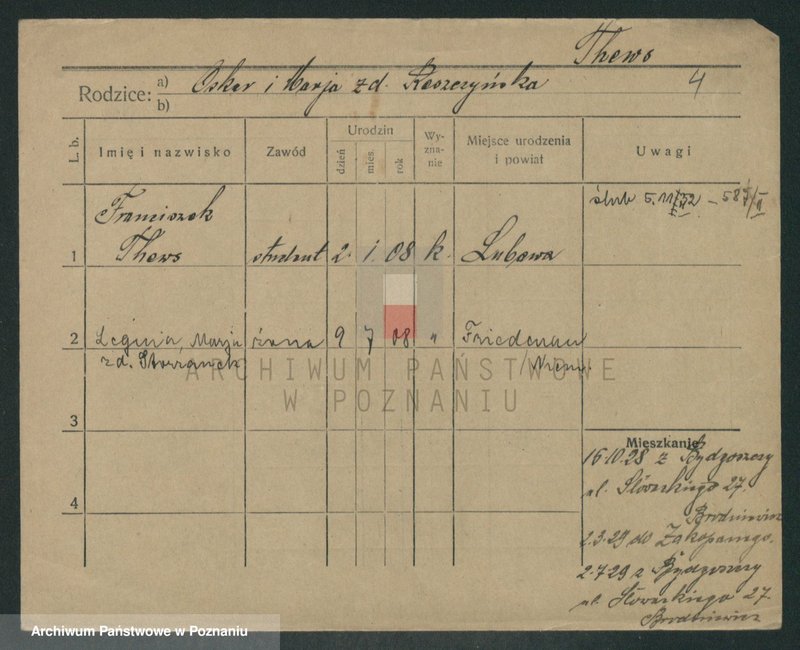 Thews
4
Rodzice: a) Oskar i Marja z d. Reszczyńska
b)
L. b. Imię i nazwisko Zawód Urodzin dzień mies. rok Wyznanie Miejsce urodzenia i powiat Uwagi
ślub 5.11
1 Franciszek
Thews student 2. 1 08 k. Lubawa
2 Marja żona 9 7 08 " Friedenau
z d. /Niem.
ARCHIWUM PAŃSTWOWE
W POZNANIU
3
Mieszkanie
16.10.28 z Bydgoszczy
ul. Słowackiego 27.
4
Brodniewicz
2.3.29 do Zakopanego.
2.7.29 z Bydgoszczy
ul. Słowackiego 27.
Brodniewicz
Archiwum Państwowe w Poznaniu